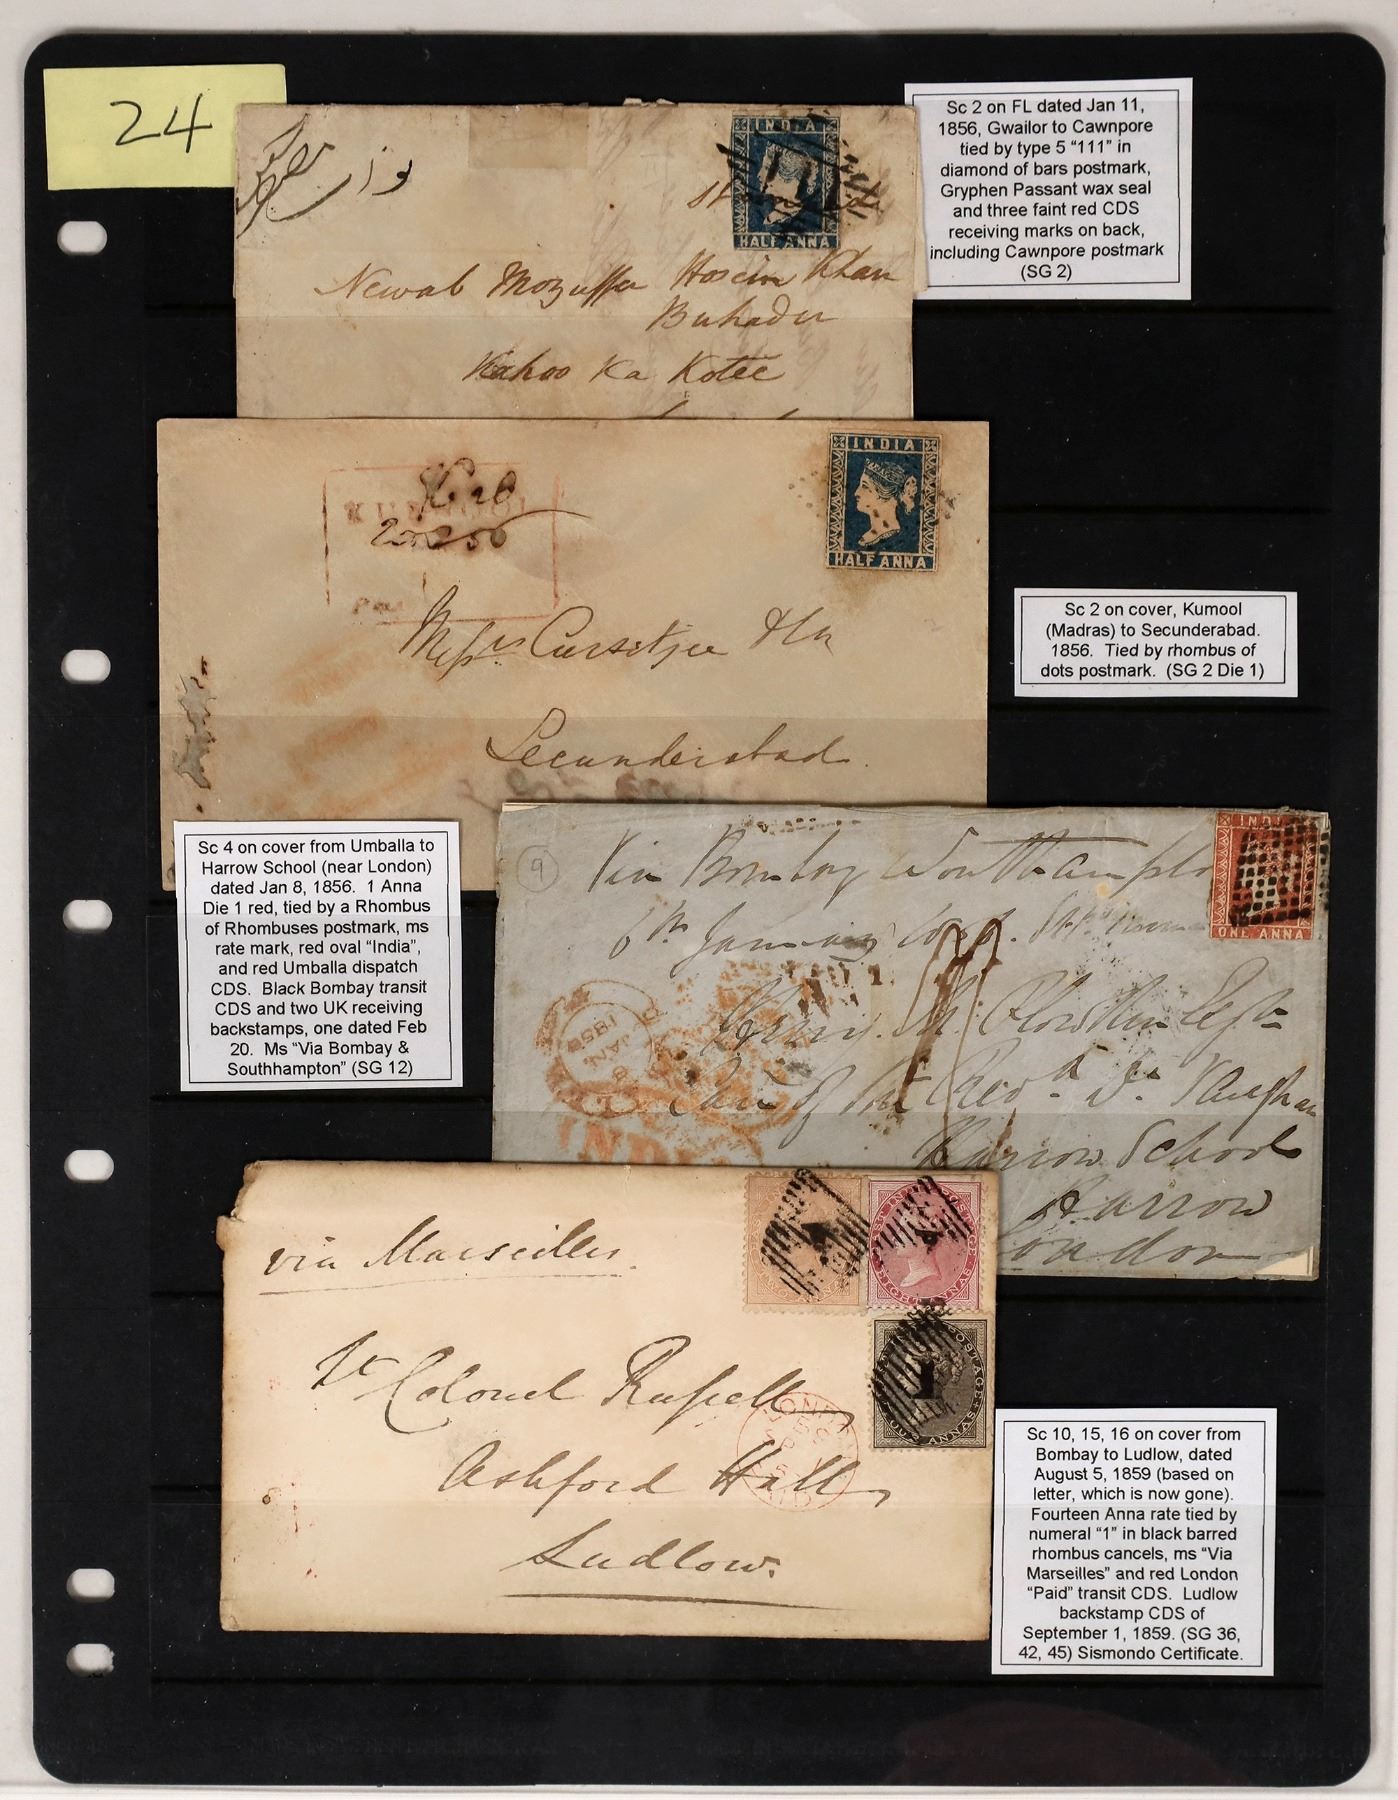 24
Sc 2 on FL dated Jan 11,
1856, Gwailor to Cawnpore
tied by type 5 "111" in
diamond of bars postmark,
Gryphen Passant wax seal
and three faint red CDS
receiving marks on back,
including Cawnpore postmark
(SG 2)
INDIA
111
HALF ANNA
Newab Mozuffer Hosein Khan
Buhadur
Kahoo Ka Kotee
INDIA
HALF ANNA
Messrs Cursetjee & Co
Secunderabad
Sc 2 on cover, Kumool
(Madras) to Secunderabad.
1856. Tied by rhombus of
dots postmark. (SG 2 Die 1)
Sc 4 on cover from Umballa to
Harrow School (near London)
dated Jan 8, 1856. 1 Anna
Die 1 red, tied by a Rhombus
of Rhombuses postmark, ms
rate mark, red oval "India",
and red Umballa dispatch
CDS. Black Bombay transit
CDS and two UK receiving
backstamps, one dated Feb
20. Ms "Via Bombay &
Southhampton" (SG 12)
9
Via Bombay Southampton
6th January
INDIA
ONE ANNA
1856
JAN
8
INDIA
Harrow School
Harrow
London
via Marseilles
EIGHT ANNAS
EIGHT ANNAS
1
FOUR ANNAS
Lt Colonel Russell
Ashford Hall
Ludlow.
LONDON
PAID
Sc 10, 15, 16 on cover from
Bombay to Ludlow, dated
August 5, 1859 (based on
letter, which is now gone).
Fourteen Anna rate tied by
numeral "1" in black barred
rhombus cancels, ms "Via
Marseilles" and red London
"Paid" transit CDS. Ludlow
backstamp CDS of
September 1, 1859. (SG 36,
42, 45) Sismondo Certificate.